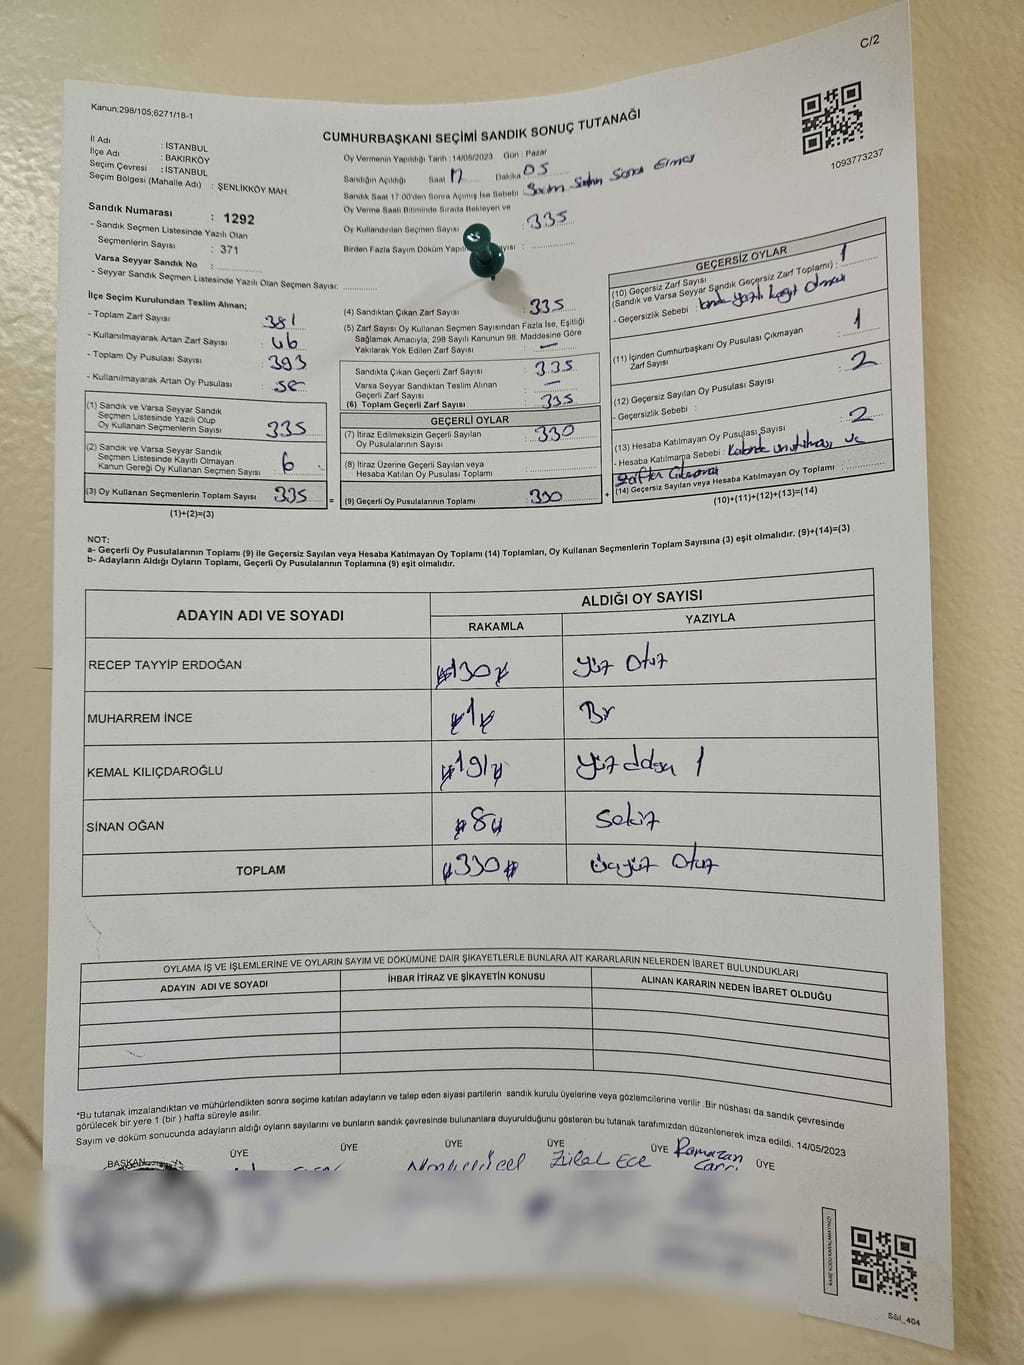 C/2
Kanun;298/105;6271/18-1
CUMHURBAŞKANI SEÇİMİ SANDIK SONUÇ TUTANAĞI
1093773237
İl Adı : İSTANBUL
İlçe Adı : BAKIRKÖY
Seçim Çevresi : İSTANBUL
Seçim Bölgesi (Mahalle Adı) : ŞENLİKKÖY MAH.
Sandık Numarası : 1292
- Sandık Seçmen Listesinde Yazılı Olan
Seçmenlerin Sayısı : 371
Varsa Seyyar Sandık No :
- Seyyar Sandık Seçmen Listesinde Yazılı Olan Seçmen Sayısı:
Oy Vermenin Yapıldığı Tarih : 14/05/2023 Gün : Pazar
Sandığın Açıldığı Saat 17 Dakika 05
Sandık Saat 17.00'den Sonra Açılmış İse Sebebi : Seçim Saatin Sona Ermesi
Oy Verme Saati Bitiminde Sırada Bekleyen ve
Oy Kullandırılan Seçmen Sayısı : 335
Birden Fazla Sayım Döküm
İlçe Seçim Kurulundan Teslim Alınan;
- Toplam Zarf Sayısı : 381
- Kullanılmayarak Artan Zarf Sayısı : 46
- Toplam Oy Pusulası Sayısı : 393
- Kullanılmayarak Artan Oy Pusulası : 58
(1) Sandık ve Varsa Seyyar Sandık
Seçmen Listesinde Yazılı Olup
Oy Kullanan Seçmenlerin Sayısı : 335
(2) Sandık ve Varsa Seyyar Sandık
Seçmen Listesinde Kayıtlı Olmayan
Kanun Gereği Oy Kullanan Seçmen Sayısı : 6
(3) Oy Kullanan Seçmenlerin Toplam Sayısı : 335
(1)+(2)=(3)
(4) Sandıktan Çıkan Zarf Sayısı : 335
(5) Zarf Sayısı Oy Kullanan Seçmen Sayısından Fazla İse, Eşitliği
Sağlamak Amacıyla; 298 Sayılı Kanunun 98. Maddesine Göre
Yakılarak Yok Edilen Zarf Sayısı : —
Sandıkta Çıkan Geçerli Zarf Sayısı : 335
Varsa Seyyar Sandıktan Teslim Alınan
Geçerli Zarf Sayısı : —
(6) Toplam Geçerli Zarf Sayısı : 335
GEÇERLİ OYLAR
(7) İtiraz Edilmeksizin Geçerli Sayılan
Oy Pusulalarının Sayısı : 330
(8) İtiraz Üzerine Geçerli Sayılan veya
Hesaba Katılan Oy Pusulası Toplamı :
(9) Geçerli Oy Pusulalarının Toplamı : 330
GEÇERSİZ OYLAR
(10) Geçersiz Zarf Sayısı
(Sandık ve Varsa Seyyar Sandık Geçersiz Zarf Toplamı) : 1
- Geçersizlik Sebebi : yazılı kağıt olması
(11) İçinden Cumhurbaşkanı Oy Pusulası Çıkmayan
Zarf Sayısı : 1
(12) Geçersiz Sayılan Oy Pusulası Sayısı : 2
- Geçersizlik Sebebi :
(13) Hesaba Katılmayan Oy Pusulası Sayısı : 2
- Hesaba Katılmama Sebebi : Kabinde unutulması ve
zarftan çıkmaması
(14) Geçersiz Sayılan veya Hesaba Katılmayan Oy Toplamı :
(10)+(11)+(12)+(13)=(14)
NOT:
a- Geçerli Oy Pusulalarının Toplamı (9) ile Geçersiz Sayılan veya Hesaba Katılmayan Oy Toplamı (14) Toplamları, Oy Kullanan Seçmenlerin Toplam Sayısına (3) eşit olmalıdır. (9)+(14)=(3)
b- Adayların Aldığı Oyların Toplamı, Geçerli Oy Pusulalarının Toplamına (9) eşit olmalıdır.
ADAYIN ADI VE SOYADI ALDIĞI OY SAYISI
RAKAMLA YAZIYLA
RECEP TAYYİP ERDOĞAN #130# yüz otuz
MUHARREM İNCE #1# Bir
KEMAL KILIÇDAROĞLU #191# yüz doksan 1
SİNAN OĞAN #8# Sekiz
TOPLAM #330# üçyüz otuz
OYLAMA İŞ VE İŞLEMLERİNE VE OYLARIN SAYIM VE DÖKÜMÜNE DAİR ŞİKAYETLERLE BUNLARA AİT KARARLARIN NELERDEN İBARET BULUNDUKLARI
ADAYIN ADI VE SOYADI İHBAR İTİRAZ VE ŞİKAYETİN KONUSU ALINAN KARARIN NEDEN İBARET OLDUĞU
*Bu tutanak imzalandıktan ve mühürlendikten sonra seçime katılan adayların ve talep eden siyasi partilerin sandık kurulu üyelerine veya gözlemcilerine verilir .Bir nüshası da sandık çevresinde
görülecek bir yere 1 (bir ) hafta süreyle asılır.
Sayım ve döküm sonucunda adayların aldığı oyların sayılarını ve bunların sandık çevresinde bulunanlara duyurulduğunu gösteren bu tutanak tarafımızdan düzenlenerek imza edildi. 14/05/2023
BAŞKAN ÜYE ÜYE ÜYE ÜYE ÜYE ÜYE
Zülal ECE Ramazan
KARE KODU KARALAMAYINIZ!
S&I_404